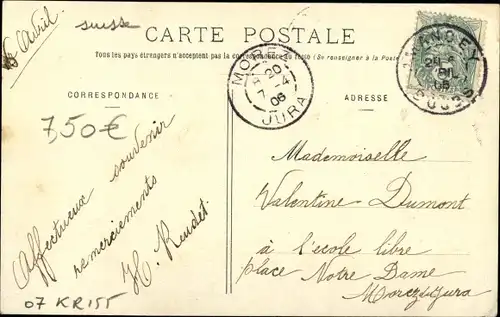 5 Avril
suisse
CARTE POSTALE
Tous les pays étrangers n'acceptent pas la correspondance au recto (Se renseigner à la Poste)
MOREZ
20
7 -4
06
JURA
DOUBS
CORRESPONDANCE
ADRESSE
7,50€
Affectueux souvenir
remerciements
H.
Mademoiselle
Valentine Dumont
à l'école libre
place Notre Dame
Morez Jura
07 KR155